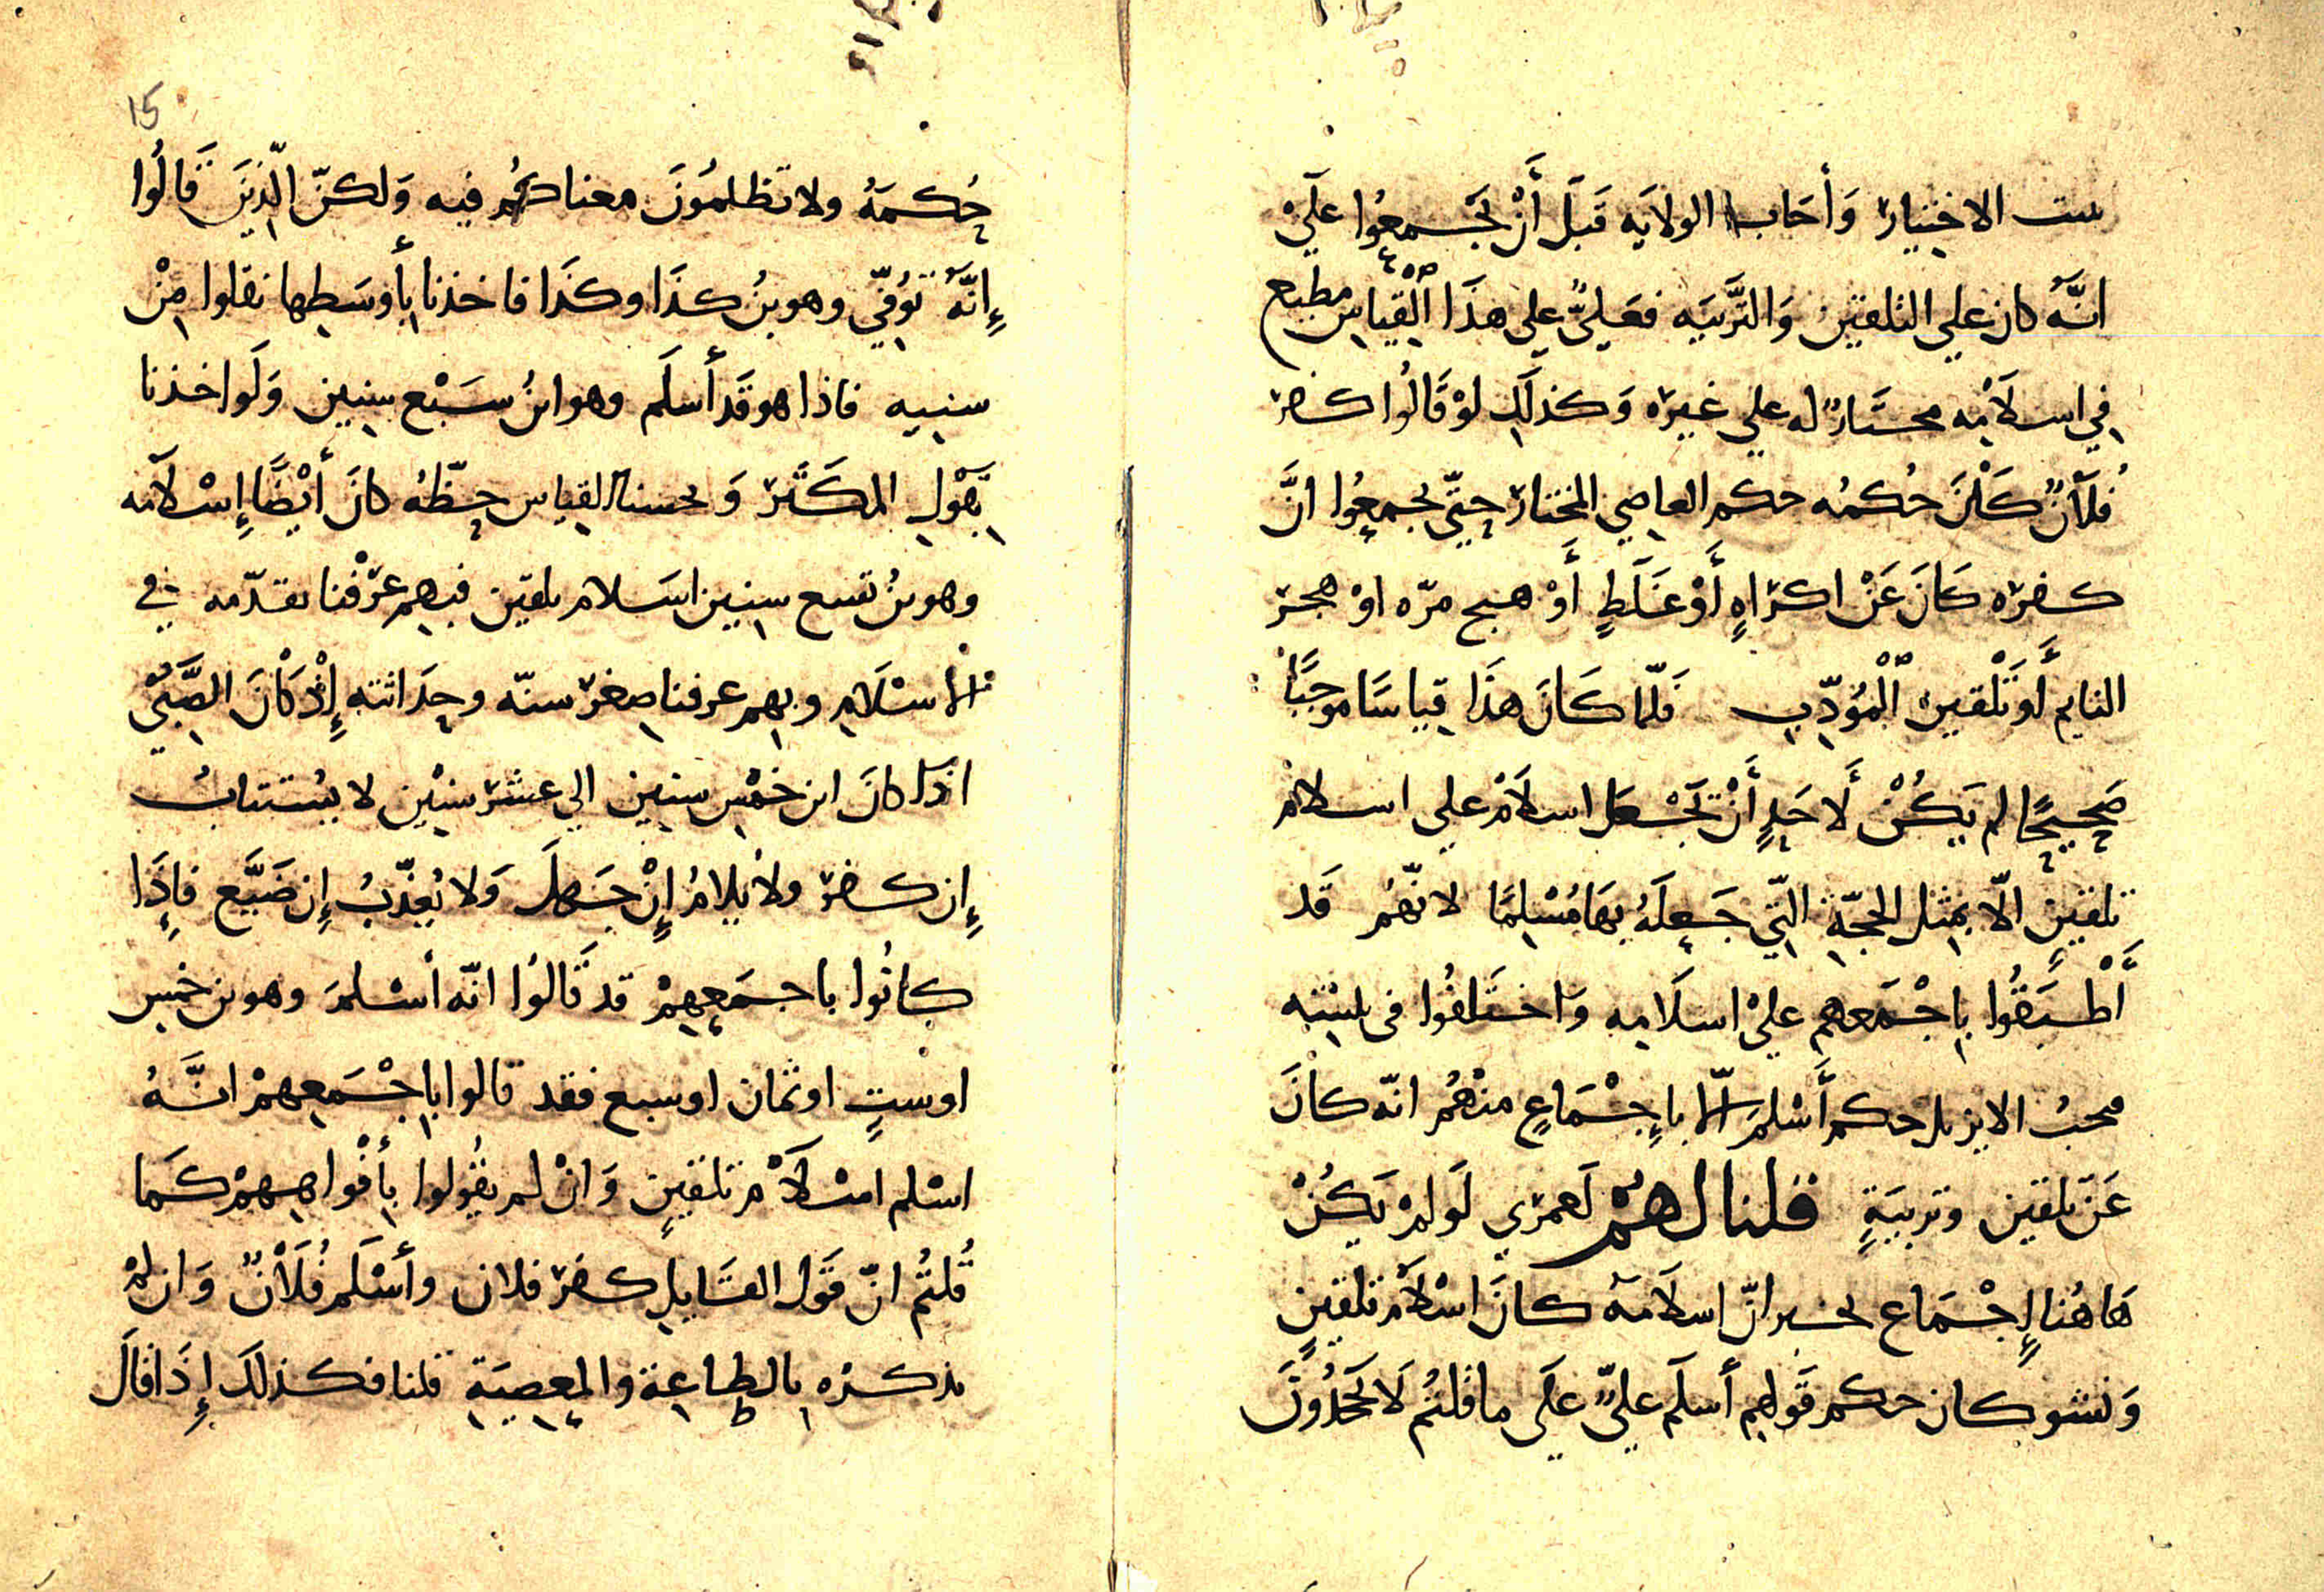 ست الاختيار وَأحَاب الولايَه قَبلَ أَنْ تجَمعُوا عَليْ
انَّهُ كان علي التلقين وَالتَّربَيه فعَليٌّ علي هذَا القِياسِ مطيع
في اسلَامِه مختَارٌ له علي غيره وَكذلَك لوْ قَالُوا كفر
فُلَانٌ كَانَ حُكمُه حكم العاصِي المختار حتّي يجمعُوا انَّ
كفره كَانَ عَنْ اكرَاهٍ أَوْ غَلَطٍ أَوْ هيج مرّه اوْ هجر
النايم أَو تَلْقين المُؤدِّبِ فَلّمَا كَانَ هذَا قياسًا موجبًا
صَحِيحًا لم يَكُنْ لَاحَدٍ أَنْ تجْعَل اسلَامْ علي اسلام
تلقينٍ الّا بمثل الحجّةِ التّي جَعلَهُ بهَا مُسْلِمًا لانّهُم قَد
أَطْبَقُوا بِاجْمَعهم عليْ اسلَامِه وَاختَلفُوا في
الا بِاجْمَاعٍ منْهُم انّه كانَ
عَنَ تلقين وتربيَةٍ قلنا لهُمْ لَعمري لَو لمْ يَكُنْ
هَاهُنا إِجْمَاع يخبر انّ اسلَامَهُ كانَ اسْلَام تلقينٍ
وَنشو كان حكم قَولهِم أسلَم عليٌّ عَلَي ما قلتُم لَا تجَدُونَ
15
حُكمَهُ ولا تظلمُونَ معناكُمْ فيه وَلكنّ الّذينَ قَالُوا
إِنَّهُ تُوُفّيَ وهو بنُ كذَا وكذَا فاخذنا بِأَوسَطِها نقلوا مِنْ
سنيه فاذا هو قَد أسلَم وهو ابنُ سَبْع سِنين وَلَو اخذنا
بقَوْلِ المكَثّر وَ القياس حظّهُ كانَ أيْضًا إِسْلَامه
وهو بنُ تسع سِنين اسَلام تلقين فبِهِم عَرفْنا تقدّمه في
الاسْلَامِ وبِهم عرفنا صِغر سنّه وحِدَاثته إِذْ كَانَ الصَّبيُّ
اذا كانَ ابن خمْسِ سنين الي عشر سنِيْن لا يُستتابُ
إِن كفر ولا يُلَامُ إِنْ جَهِلَ وَلا يُعذّبُ إِن ضَيَّع فاِذَا
كانُوا باجمَعِهِمْ قد قَالوُا انّه أسْلمَ وهو بن خمس
اوْ ستٍ او ثمان او سبع فقد قالوا بِاجْمَعِهمْ انَّهُ
اسْلم اسْلاَمْ تلقينٍ وَانْ لم يقُولوا بِأَفْواهِهِمْ كَما
قُلتُم انّ قَول القَايلِ كفر فلان وأسْلَم فُلَانٌ وَان لمْ
يذكرْه بِالطاعة والمعصيَةِ قلنا فكذلَكَ إِذَا قالَ